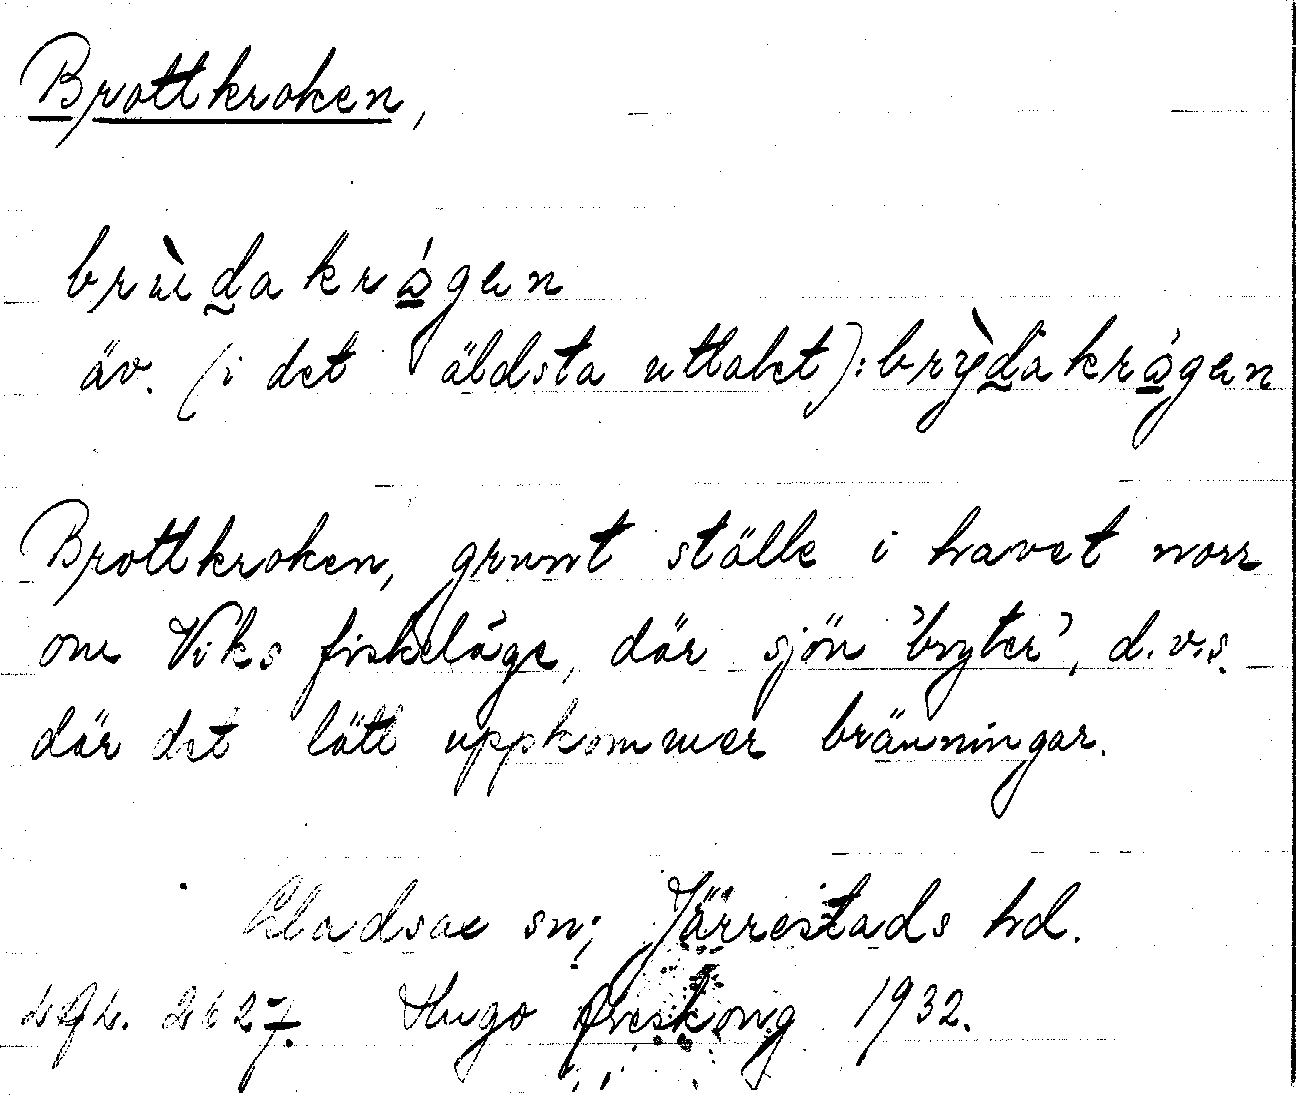 Brottkroken,
brùdakrågen
äv. (i det äldsta uttalet): brỳdakrågen
Brottkroken, grunt ställe i havet norr
om Viks fiskeläge, där sjön 'bryter', d.v.s.
där det lätt uppkommer bränningar.
Gladsax sn; Järrestads hd.
2627. Hugo Areskoug 1932.